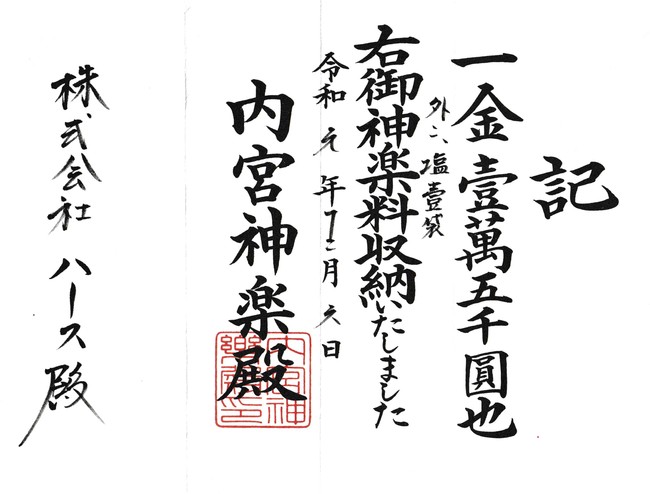 記
一金壹萬五千圓也
外ニ、塩壹袋
右御神楽料収納いたしました
令和元年十二月六日
内宮神楽殿
内宮神
樂殿印
株式会社ハース殿